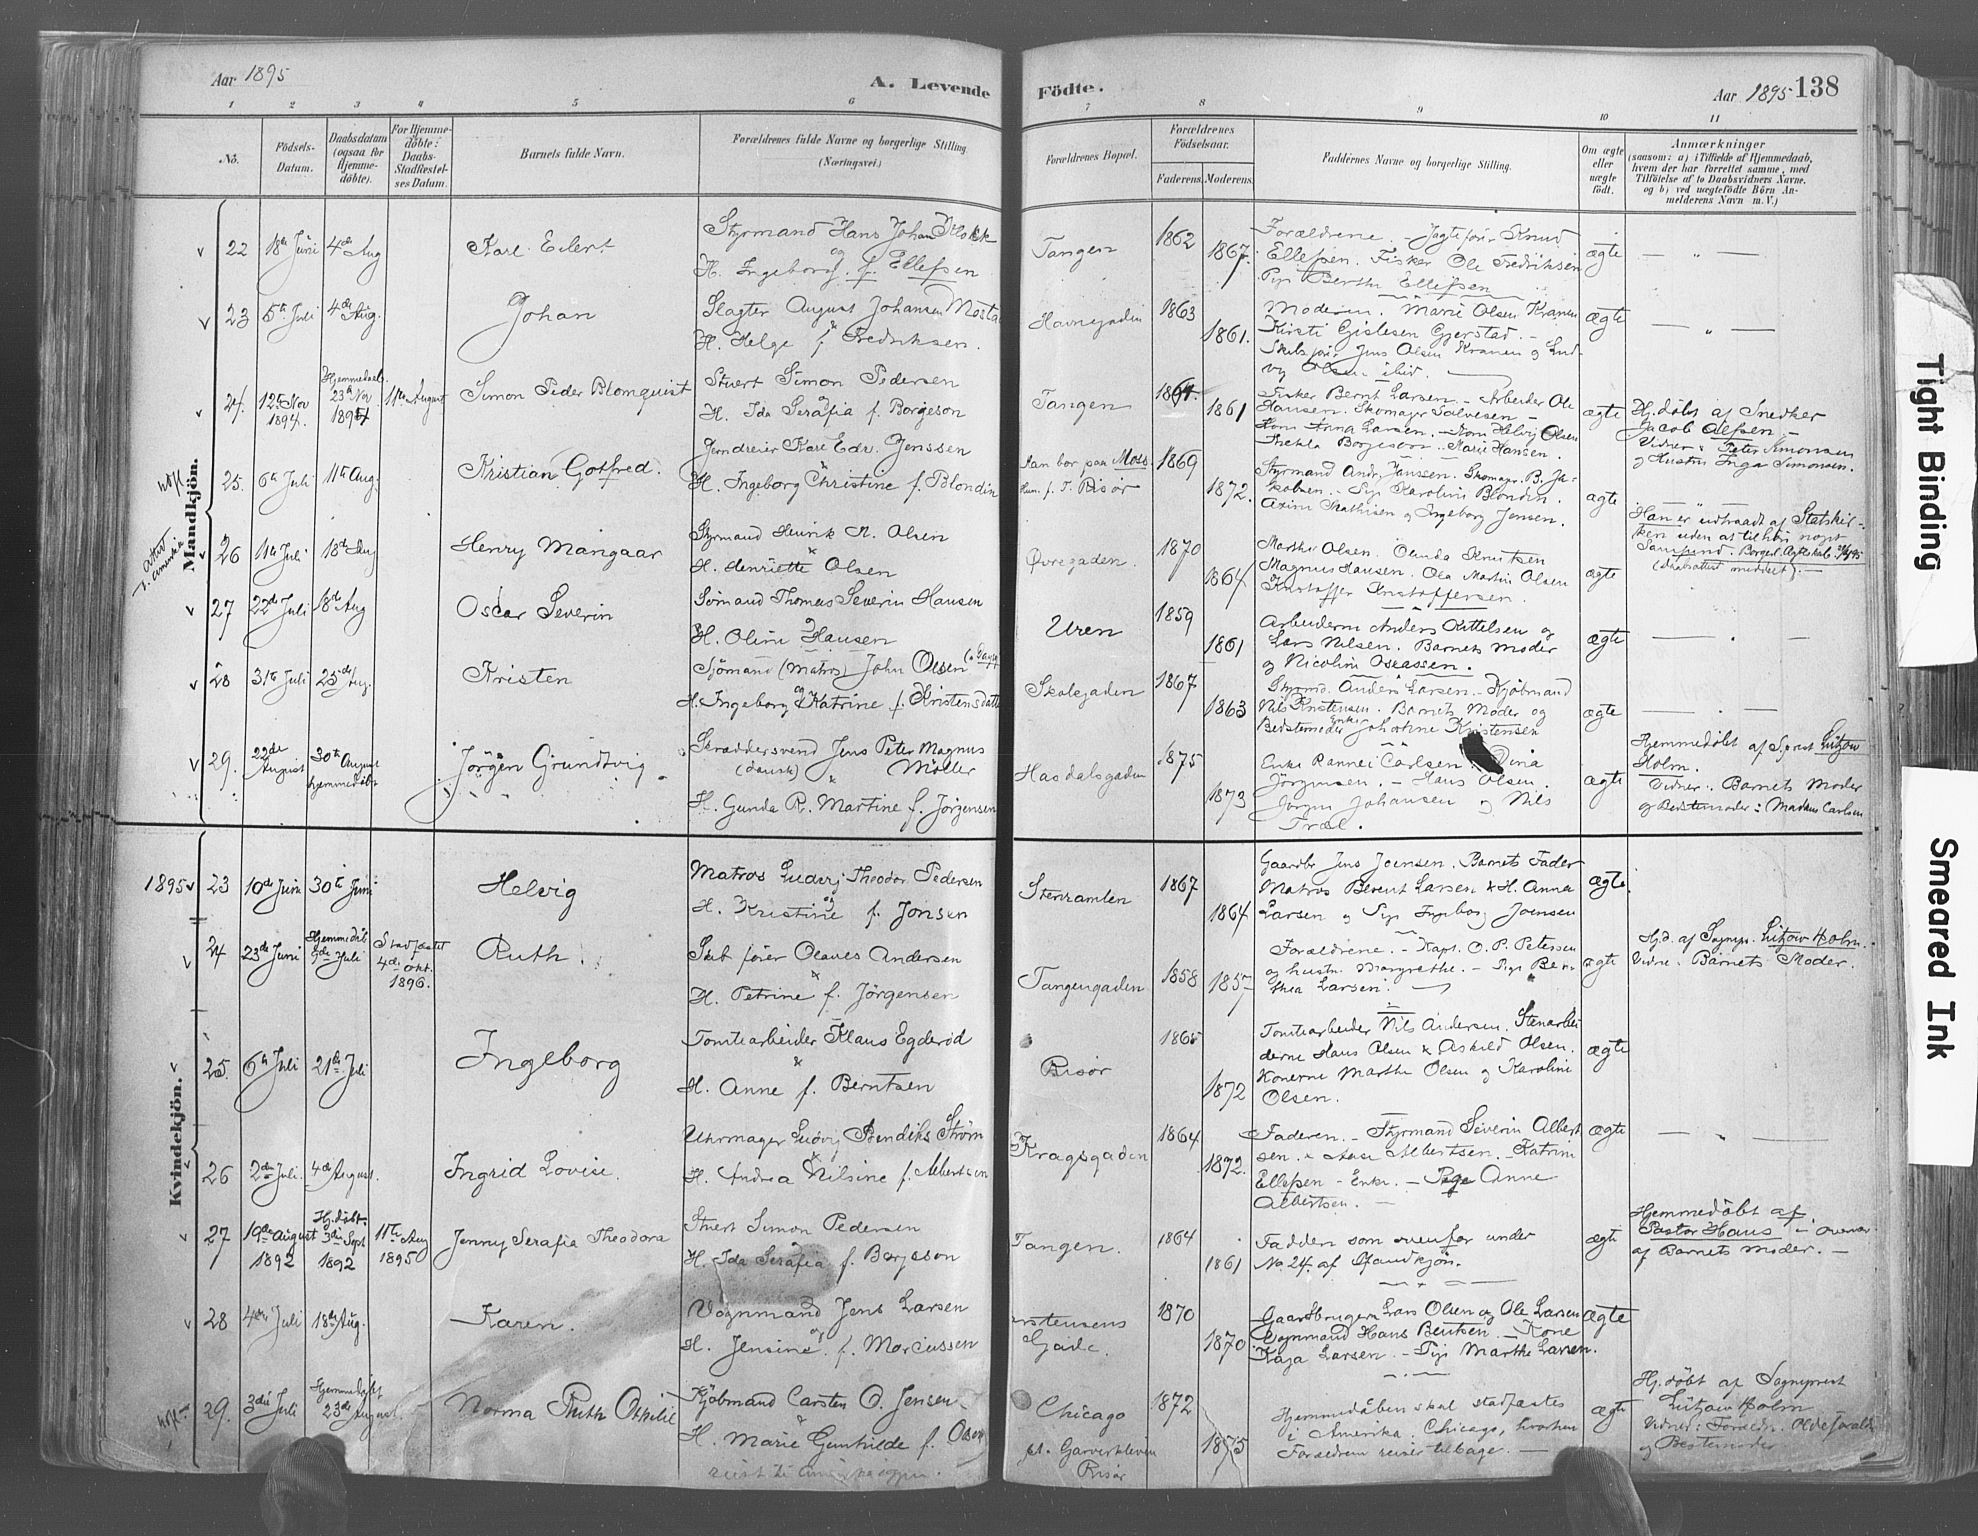 Aar 1895
A. Levende Födte.
Aar 1895 138
1 2 3 4 5 6 7 8 9 10 11
No.
Födsels-Datum.
Daabsdatum (ogsaa for Hjemmedöbte).
For Hjemmedöbte: Daabs-Stadfæstelses Datum.
Barnets fulde Navn.
Forældrenes fulde Navne og borgerlige Stilling
(Næringsvei)
Forældrenes Bopæl.
Forældrenes Födselsaar.
Faderens. Moderens.
Faddernes Navne og borgerlige Stilling.
Om ægte eller uægte födt.
Anmærkninger
(saasom: a) i Tilfælde af Hjemmedaab,
hvem der har forrettet samme, med
Tilföielse af to Daabsvidners Navne.
og b) ved uægtefödte Börn Anmelderens Navn m. V.)
Mandkjön.
22 18de Juni 4de Aug Karl Eilert
Styrmand Hans Johan Klokk
og
H. Ingeborg f. Ellefsen
Tangen 1862 1867
Forældrene. - Jagtför. Knud
Ellefsen. Fisker Ole Fredriksen
Pig. Berthe Ellefsen
ægte
23 5te Juli 4de Aug. Johan
Slagter August Johansen
H. Helge f. Fredriksen.
Havnegaden 1863 1861.
Moderen. Marie Olsen Kranen
Kirsti Gislesen Gjerstad. -
Skibsför. Jens Olsen Kranen og Lud-
vig Olsen ibid.
ægte
24. 12te Nov 1894. Hjemmedaab 23de Nov 1894 11te August Simon Peder Blomquist
Stuert Simon Pedersen
H. Ida Serafia f. Borgeson
Tangen 1864. 1861
Fisker Bernt Larsen. - Arbeider Ole
Hansen. Skomager Salvesen -
Kone Anna Larsen. - Kone Helvig Olsen
Thekla Borgeson. Marie Hansen.
ægte
Hj. döbt af Snedker
Jacob Alfsen. -
Vidner: Peter Simonsen
og Hustru Inga Simonsen.
25. 6te Juli 11te Aug. Kristian Gotfred.
Jerndreier Karl Edv. Jenssen
H. Ingeborg Christine f. Blondin
Han bor paa Moss.
Hun f. T. Risör
1869 1872.
Styrmand Andr. Hanssen. Skomager B. Ja-
kobsen. Pige Karoline Blondin.
Mathisen og Ingeborg Jensen.
ægte
Han er udtraadt af Statskir-
ken uden at tilhöre noget
Samfund.
26 11te Juli 18de Aug Henry Mangaar
Styrmand Henrik M. Olsen
H. Henriette Olsen
Övregaden. 1870 1864
Marthe Olsen. Knutsen
Magnus Hansen. Ole Martin Olsen
Kristoffer Kristoffersen.
ægte
27 22de Juli 18de Aug Oscar Severin
Sömand Thomas Severin Hansen
og
H. Oline Hansen
Uren 1859 1861
Arbeiderne Anders Kittelsen og
Lars Nilsen. Barnets Moder
og Nicoline Aseassen.
ægte
28 31te Juli 25de Aug. Kristen
Sjömand (Matros) John Olsen
H. Ingeborg Katrine f. Kristensdatter
Skolegaden 1867 1863
Styrmd. Anders Larsen. - Kjöbmand
Nils Kristensen. Barnets Moder og
Bedstemoder Enke Johanne Kristensen
ægte
29. 22de August 30te August hjemmedöbt Jörgen Grundtvig.
Skræddersvend Jens Peter Magnus
(dansk) Möller
H. Gunda R. Martine f. Jörgensen
Hasdalsgaden 1875 1873
Enke Rannei Carlsen. Dina
Jörgensen. - Hans Olsen.
Jörgen Johansen og Nils
Træl.
ægte
Hjemmedöbt af Sgprst Lützow
Holm.
Vidner: Barnets Moder
og Bedstemoder: Madam Carlsen
Kvindekjön.
1895 23 10de Juni 30te Juni Helvig
Matros Ludvig Theodor Pedersen
og
H. Kristine f. Jonsen
Stenramlen 1867 1864
Gaardbr Jens Joensen. Barnets Fader
Matros Berent Larsen & H. Anna
Larsen og Pige Ingeborg Joensen
ægte.
24 23de Juni Hjemmedöbt 5de Juli Stadfæstet 4de Okt. 1896. Ruth.
Skibförer Olaves Andersen
H. Petrine f. Jörgensen
Tangengaden 1858 1857
Forældrene. - Kapt. O. P. Petersen
og hustru Margrethe. - Pige Ber-
thea Larsen.
ægte
Hjd. af Sognepr. Lützow Holm.
Vidne: Barnets Moder.
25. 6te Juli 21de Juli Ingeborg
Tomtearbeider Klaus Egderöd
H. Anne f. Berntsen
Risör 1865 1872
Tomtearbeider Nils Andersen. Stenarbei-
derne Hans Olsen & Askild Olsen.
Konerne Marthe Olsen og Karoline
Olsen.
ægte
26 2den Juli. 4de August. Ingrid Lovise.
Uhrmager Ludvig Bendiks Ström
H. Andrea Nilsine f. Albertsen
Kragsgaden 1864 1872.
Faderen. - Styrmand Severin Albert
sen. & Aase Albertsen. Katrine
Ellefsen - Enke. - Pige Anne
Albertsen. -
ægte
27 19de August 1892 Hj. döbt. 3die Sept 1892 11te Aug 1895 Jenny Serafia Theodora
Stuert Simon Pedersen
H. Ida Serafia f. Borgsson
Tangen. 1864 1861
Faddere som ovenfor under
No. 24. af Mandkjön.
ægte
Hjemmedöbt af
Pastor Hans
af Barnets Moder. -
28 4de Juli 18de Aug. Karen.
Vognmand Jens Larsen
og
H. Jensine f. Marcussen
Gade. 1870 1870
Gaardbrugern Lars Olsen og Ole Larsen
Vognmand Hans Bentsen. - Kone
Kaja Larsen. - Pige Marthe Larsen.
ægte
29. 3die Juli Hjemmedöbt 23de August. Norma Ruth Othilie
Kjöbmand Carsten O. Jensen
H. Marie Gunhilde f. Olsen
Chicago
Risör
1872 1875
Hjemmedaaben skal stadfæstes
i Amerika. Chicago, hvorhen
Forældrene reiser tilbage. -
ægte
Hj. döbt af Sogneprest
Lützow Holm
Vidner: Forældr. Oldeforældre
og Bestemoder
Tight Binding
Smeared Ink